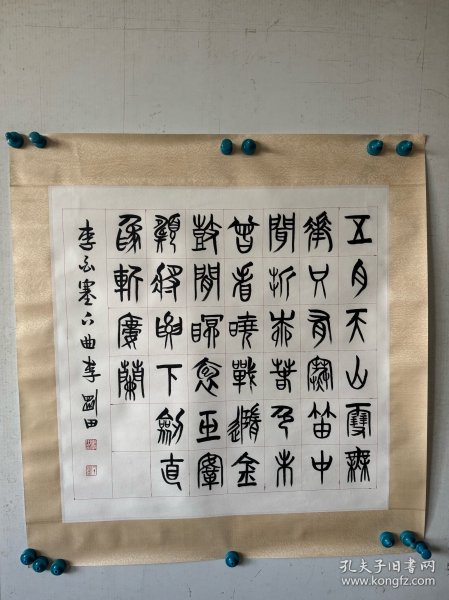 五月天山雪無
花只有寒笛中
聞折柳春色未
曾看曉戰隨金
鼓宵眠抱玉鞍
願將腰下劍直
為斬樓蘭
李白塞下曲李剛田
孔夫子旧书网
www.kongfz.com